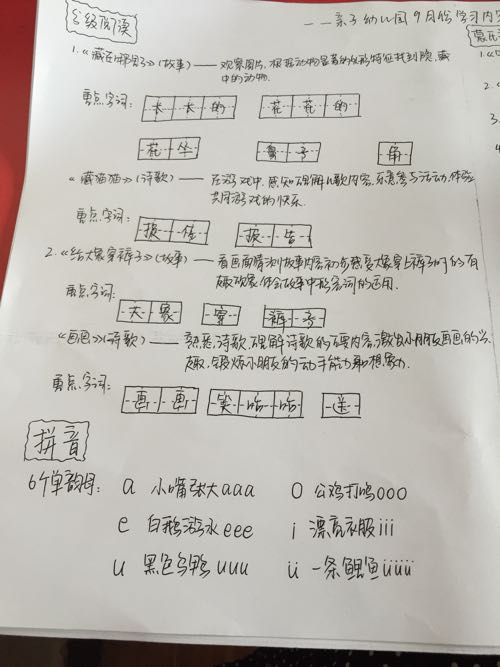 分级阅读
——亲子幼儿园9月份学习内容
1.《藏在哪里》(故事)——观察图片,根据动物显著的外形特征找到隐藏
中的动物.
重点字词: 长长的 花花的
花伞 角
《藏猫猫》(诗歌)——在游戏中,感知理解儿歌内容,乐意参与活动,体验
共同游戏的快乐.
重点字词: 报告
2.《给大象穿裤子》(故事)——看画面猜测故事内容,初步感受大象穿上裤子时的有
趣现象,体会故事中形容词的运用.
重点字词: 大象 穿 裤子
《画画》(诗歌)——熟悉诗歌,理解诗歌的主要内容,激发小朋友画画的兴
趣,锻炼小朋友的动手能力和想象力.
重点字词: 画画 笑哈哈 送
拼音
6个单韵母: a 小嘴张大aaa o 公鸡打鸣ooo
e 白鹅游水eee i 漂亮衣服iii
u 黑色乌鸦uuu ü 一条鲤鱼üüü